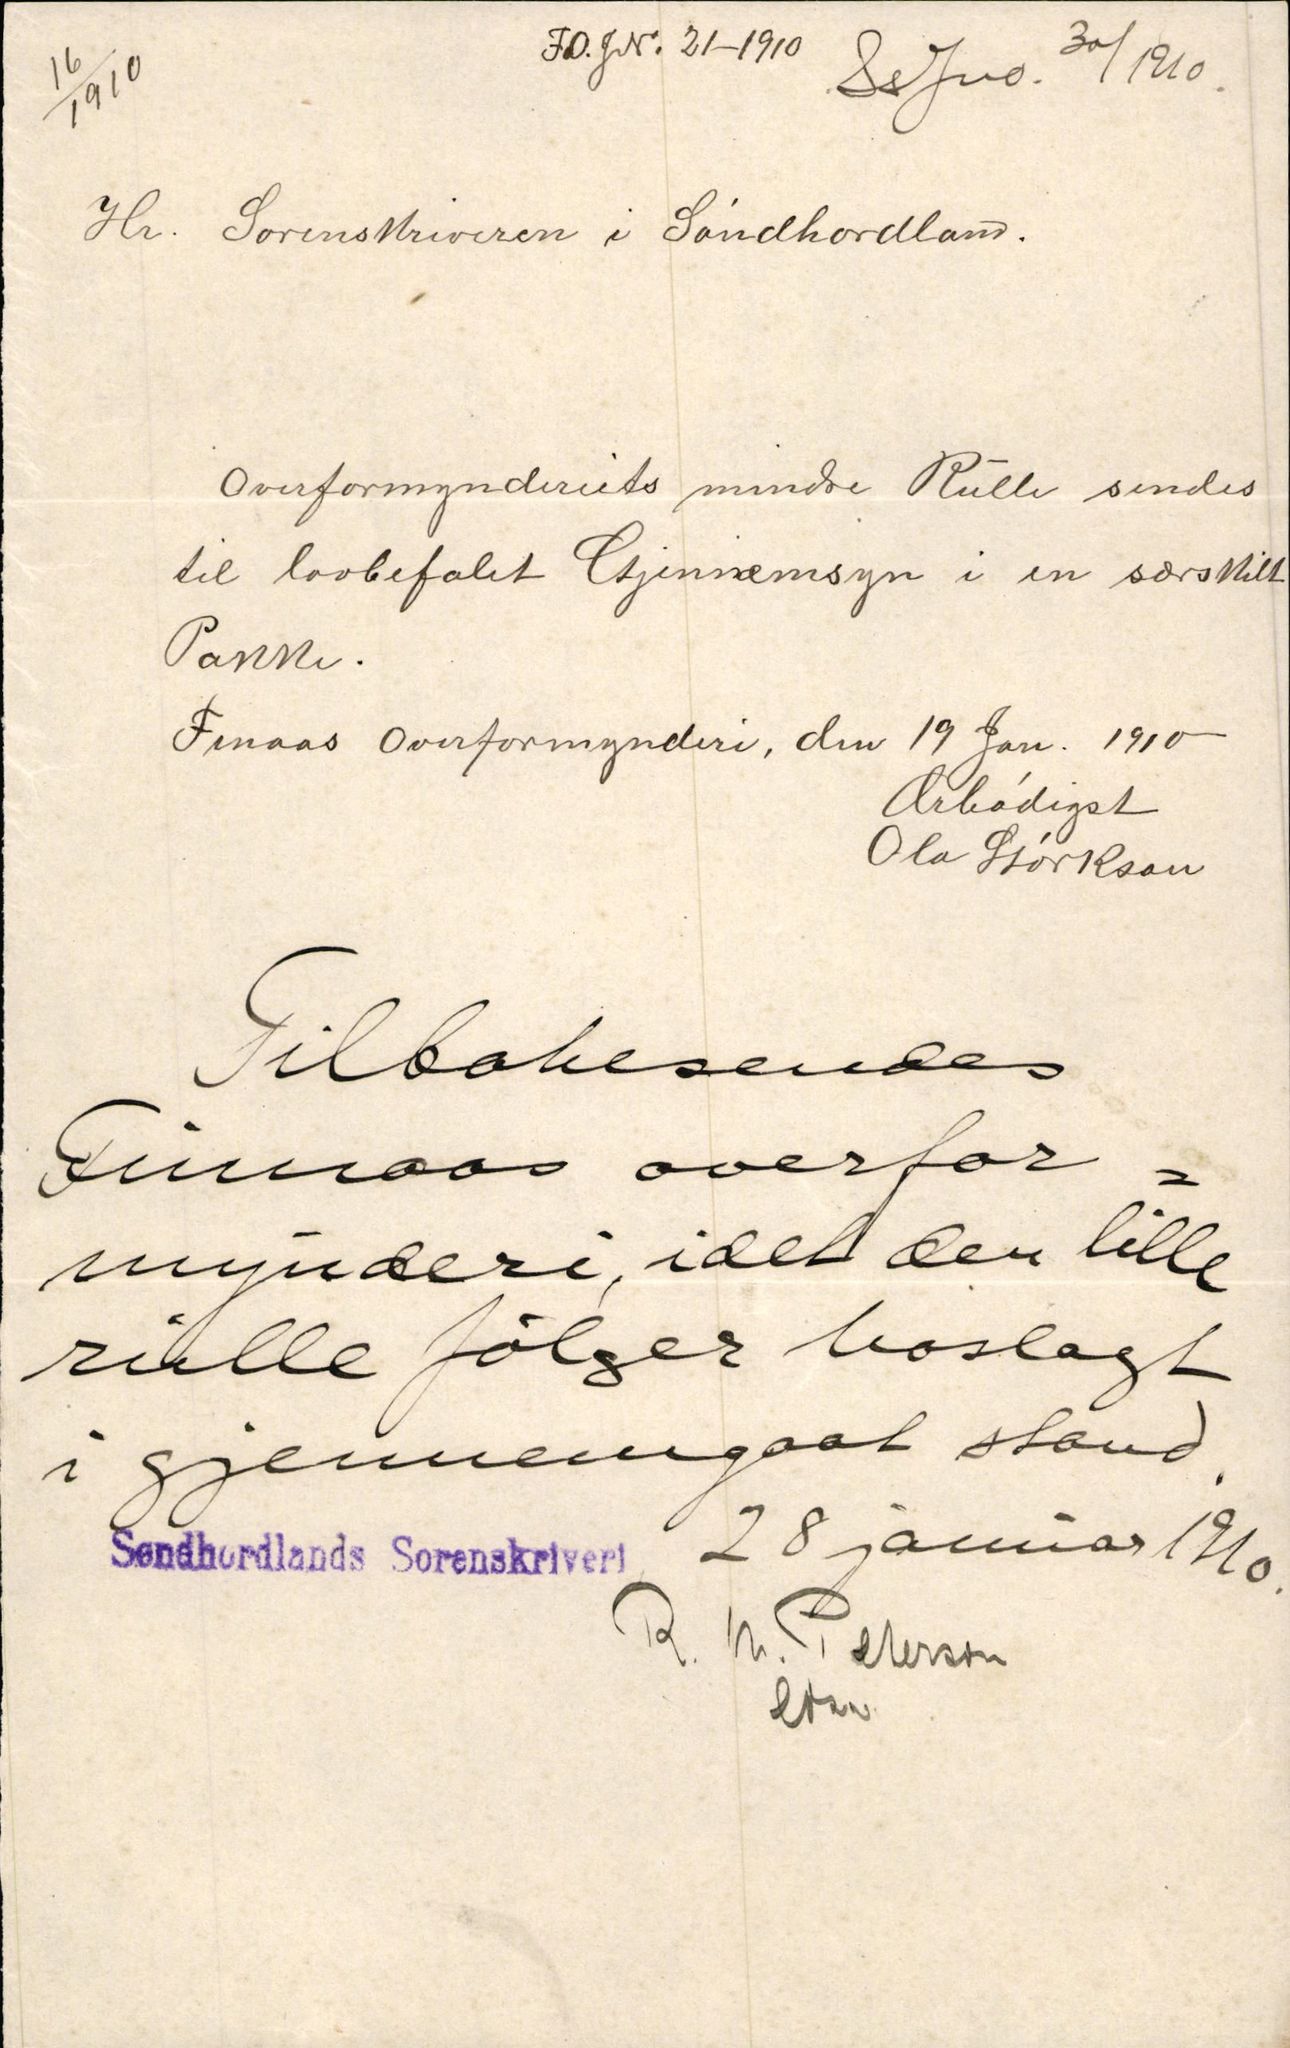 16/1910
F.O.JNr. 21-1910
SsJno. 30/1910.
Hr. Sorenskriveren i Söndhordland.
Overformynderiets mindre Rulle sendes
til lovbefalet Gjennemsyn i en særskilt
Pakke.
Finaas Overformynderi, den 19 Jan. 1910
Ærbødigst
Ola Størkson
Tilbakesendes
Finnaas overfor=
mynderi, idet den lille
rulle følger hoslagt
i gjennemgaat stand.
Søndhordlands Sorenskriveri 28 januar 1910.
R. M. Peterson